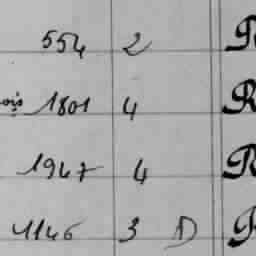 554 2 R
ois 1801 4 R
1947 4 R
1146 3 D R